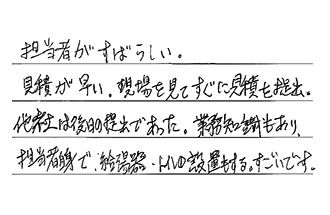 担当者がすばらしい。
見積が早い。現場を見てすぐに見積を提出。
他社は後日の提出であった。業務知識もあり、
担当者自身で、給湯器・トイレの設置もする。すごいです。